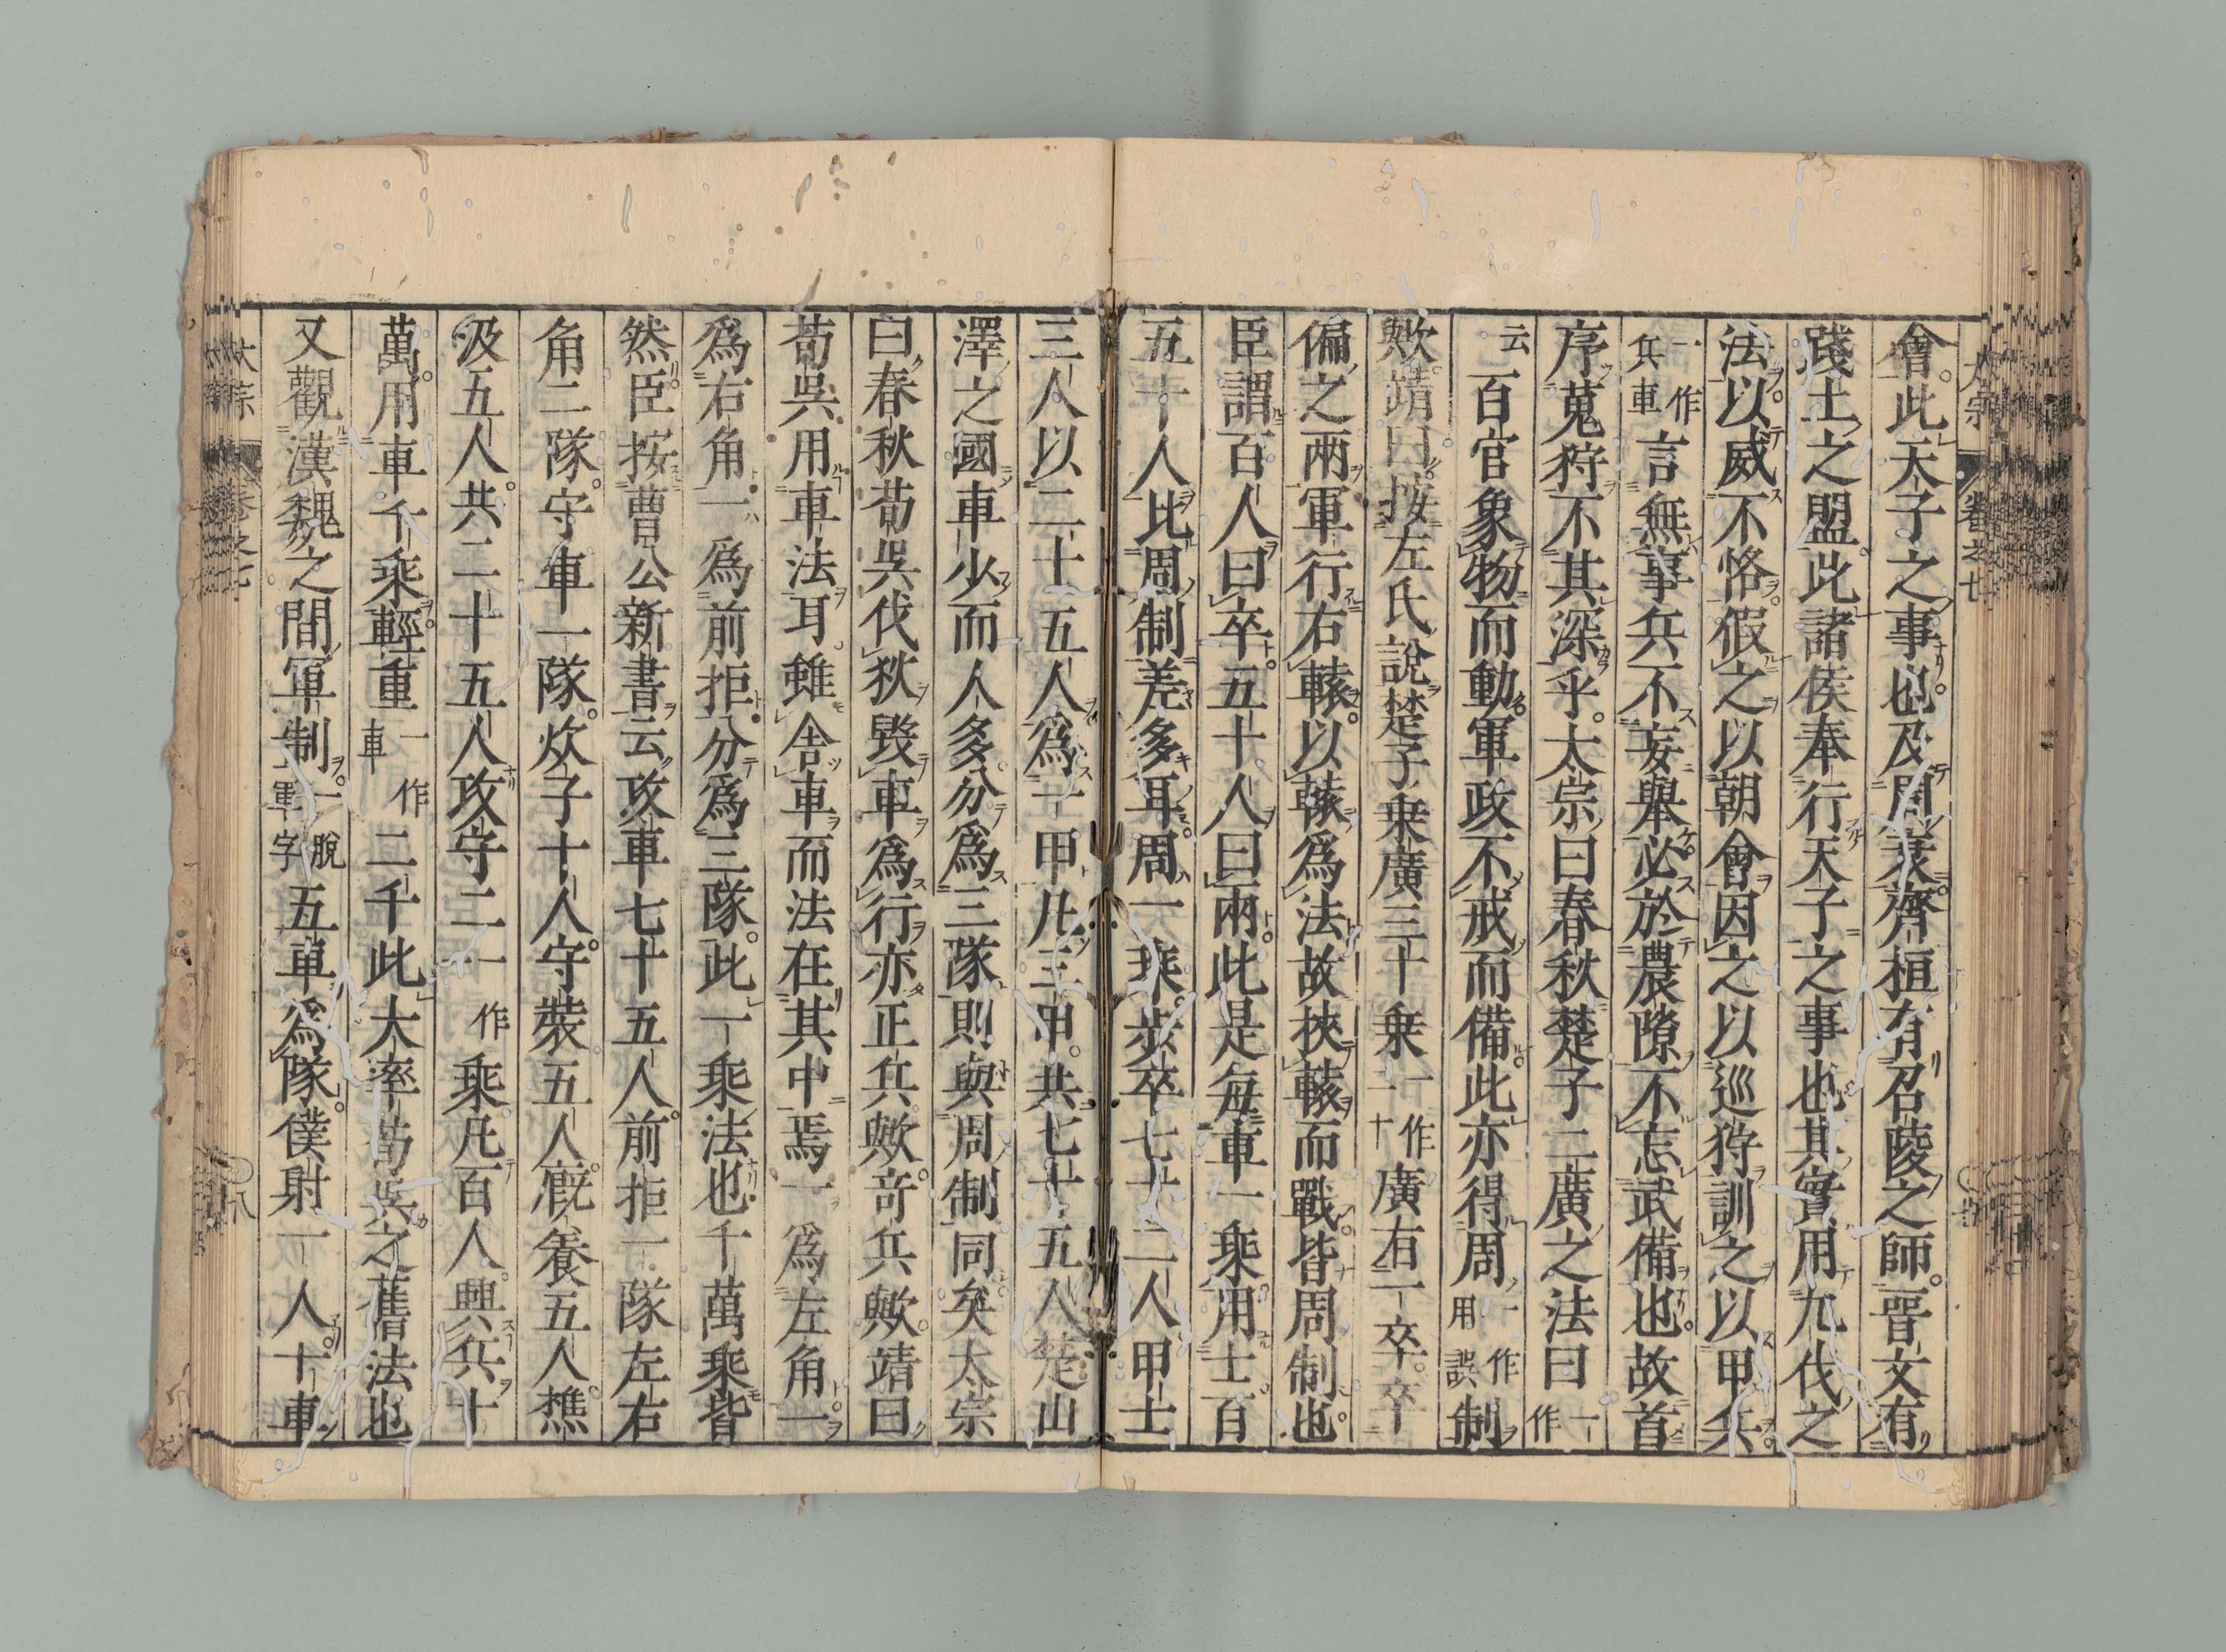 大宗　卷之七
會。此天子之事也。及周衰。齊桓有召陵之師。晉文有
踐土之盟。此諸侯奉行天子之事也。其實用九伐之
法。以威不恪。假之以朝會。因之以巡狩。訓之以甲兵。
一作兵車言無事兵不妄舉。必於農隙。不忘武備也。故首
序蒐狩。不其深乎。太宗曰春秋楚子二廣之法曰一作
云百官象物而動。軍政不戒而備。此亦得周一作用誤制
歟。靖曰。按左氏說。楚子乗廣三十乗一作二十廣有一卒。卒
偏之兩。軍行右轅。以轅爲法。故挾轅而戰。皆周制也。
臣謂百人曰卒。五十人曰兩。此是每車一乘。用士百
五十人。比周制差多耳。周一乘。步卒七十二人。甲士
三人。以二十五人爲一甲。凡三甲。共七十五人。楚山
澤之國。車少而人多。分爲三隊。則與周制同矣。太宗
曰。春秋荀吳伐狄。毀車爲行。亦正兵歟。奇兵歟。靖曰
荀吳用車法耳。雖舍車而法在其中焉。一爲左角。一
爲右角。一爲前拒。分爲三隊。此一乘法也。千萬乘皆
然。臣按曹公新書云。攻車七十五人。前拒一隊。左右
角二隊。守車一隊。炊子十人。守裝五人。廐養五人。樵
汲五人。共二十五人。攻守二一作乘。凡百人。興兵十
萬。用車千乘。輕重一作車二千。此大率荀吳之舊法也
又觀漢魏之間軍制。一脫軍字五車爲隊。僕射一人。十車
大宗　卷之七　八